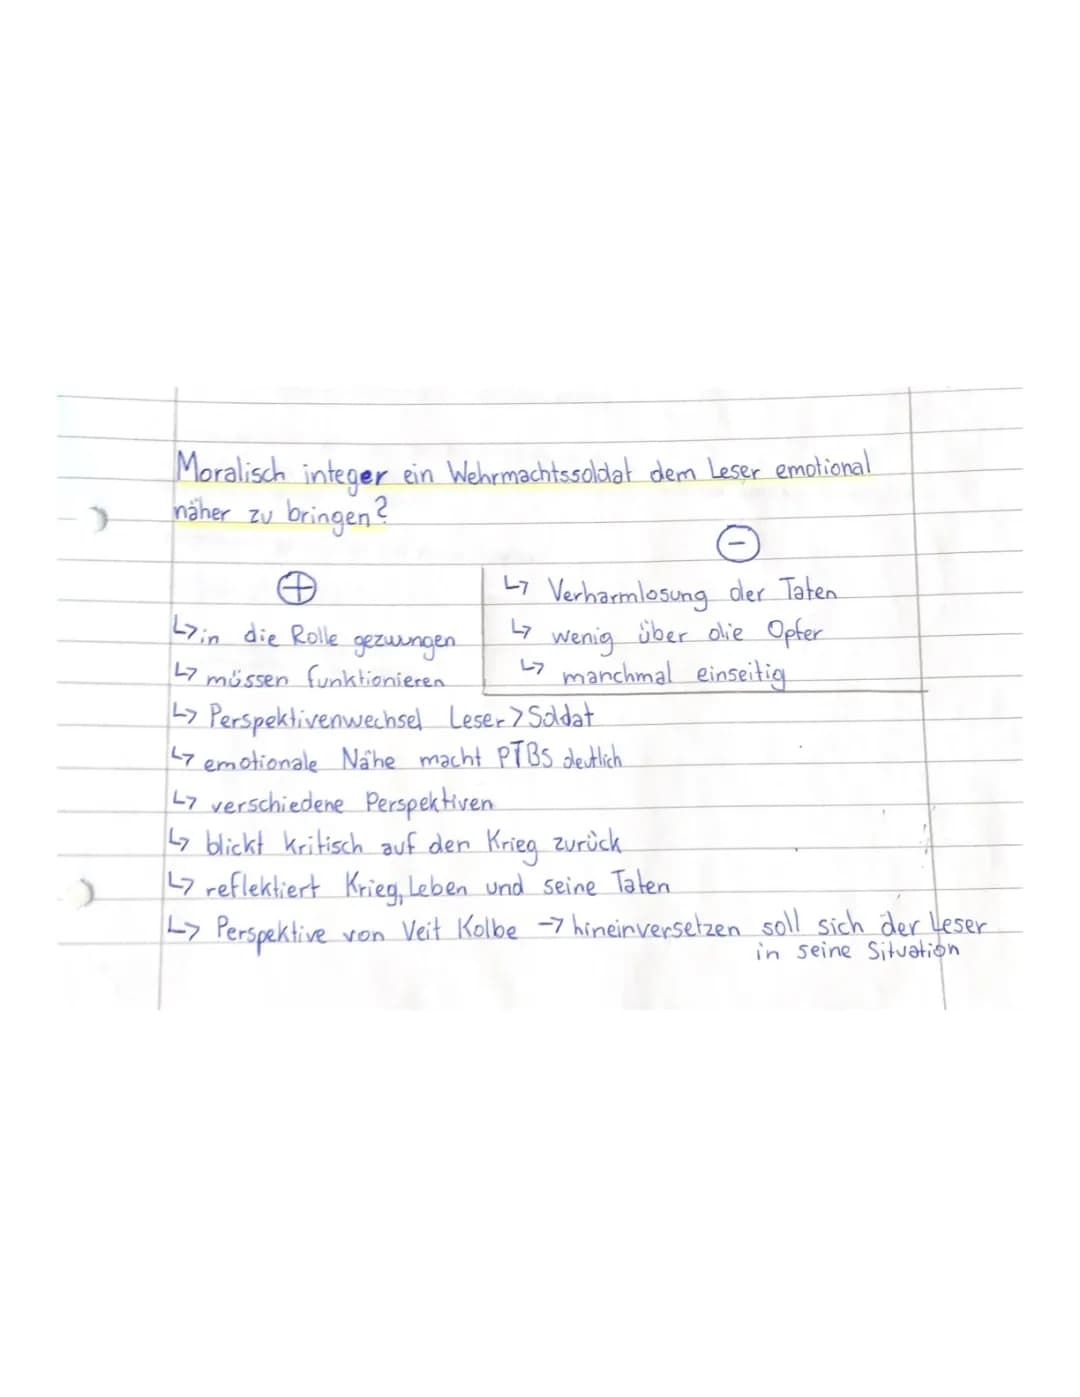 Moralisch integer ein Wehrmachtssoldat dem Leser emotional
näher zu bringen?
⊕
↳ in die Rolle gezwungen
↳ müssen funktionieren
⊖
↳ Verharmlosung der Taten
↳ wenig über die Opfer
↳ manchmal einseitig
↳ Perspektivenwechsel Leser > Soldat
↳ emotionale Nähe macht PTBS deutlich
↳ verschiedene Perspektiven
↳ blickt kritisch auf den Krieg zurück
↳ reflektiert Krieg, Leben und seine Taten
↳ Perspektive von Veit Kolbe → hineinversetzen soll sich der Leser
in seine Situation